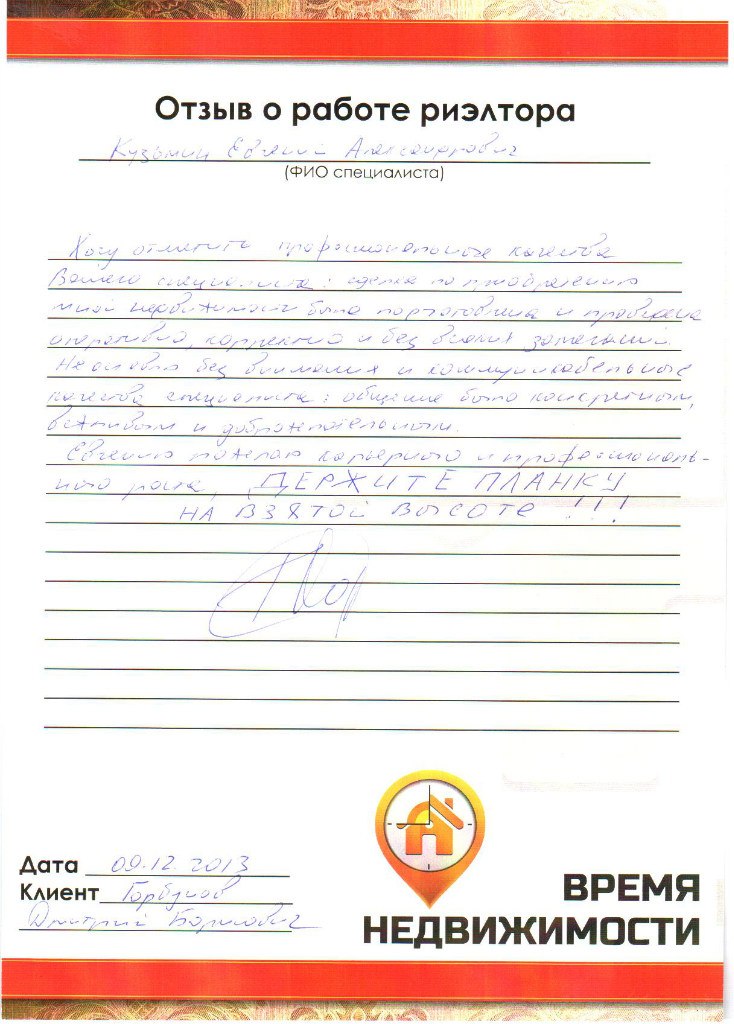 Отзыв о работе риэлтора
Кузьмин Евгений Александрович
(ФИО специалиста)
Хочу отметить профессиональные качества
Вашего специалиста: сделка по приобретению
мной недвижимости была подготовлена и проведена
оперативно, корректно и без всяких замечаний.
Не остались без внимания и коммуникабельные
качества специалиста: общение было конкретным,
вежливым и доброжелательным.
Евгению желаю карьерного и профессиональ-
ного роста, ДЕРЖИТЕ ПЛАНКУ
НА ВЗЯТОЙ ВЫСОТЕ !!!
Дата 09.12.2013
Клиент Горбунов
Дмитрий Борисович
ВРЕМЯ
НЕДВИЖИМОСТИ